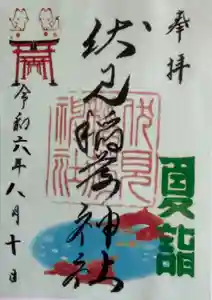 奉拝
夏詣
伏見稲荷神社
伏見
神社
令和六年八月十日